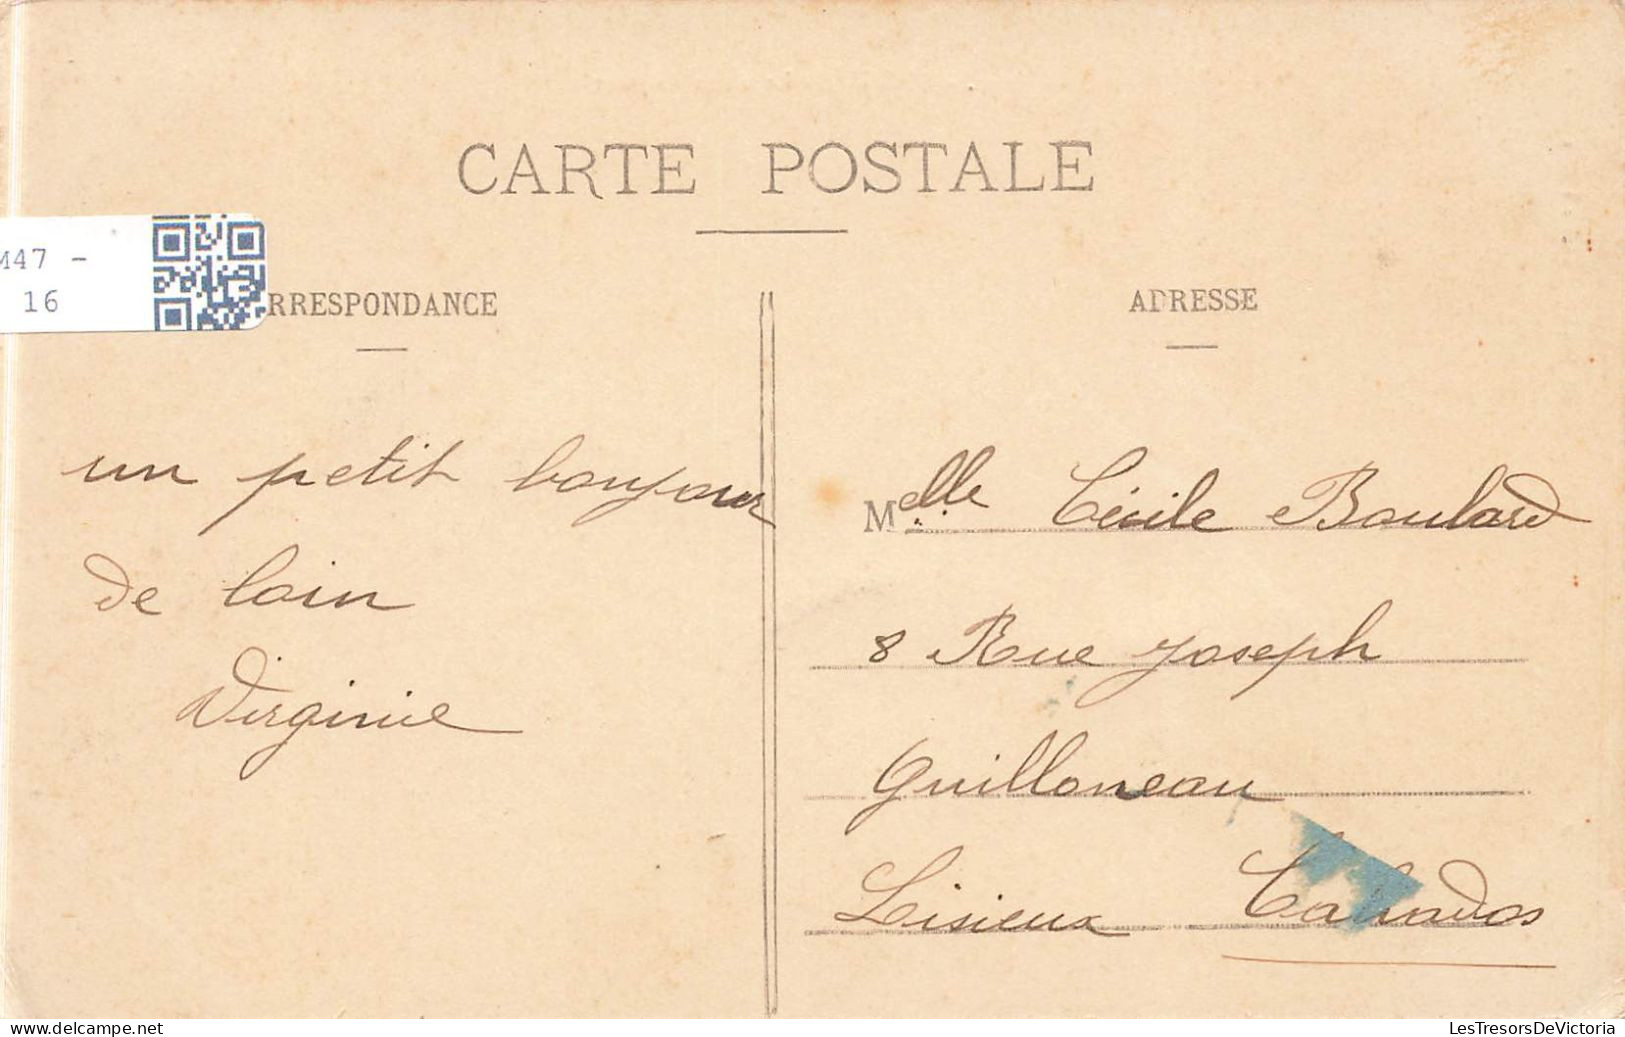 CARTE POSTALE
M47 -
16
RRESPONDANCE
ADRESSE
un petit bonjour
de loin
Virginie
Melle Cécile Boulard
8 Rue Joseph
Guilloneau
Lisieux Calvados
www.delcampe.net
LesTresorsDeVictoria